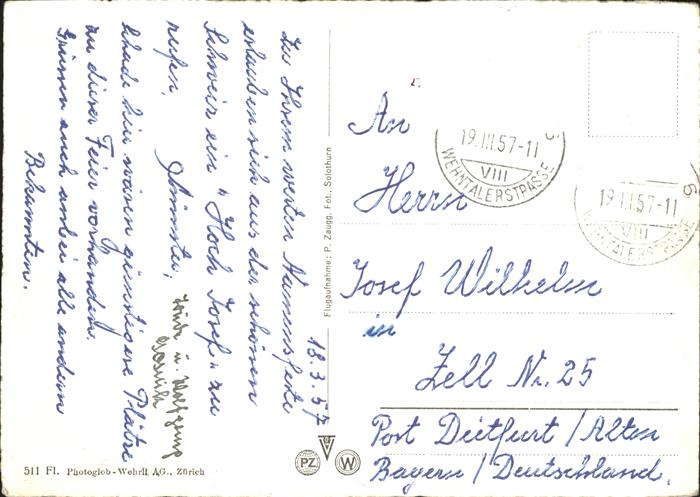 18.3.57
Zu Ihrem werten Namensfeste
erlauben sich aus der schönen
Schweiz ein "Hoch Josef" zu
rufen,
u. Wolfgang
hin wären günstigere Plätze
an dieser Feier vorhanden.
Grüssen auch anbei alle andern
Bekannten.
Flugaufnahme: P. Zaugg, Fot., Solothurn
An
Herrn
Josef Wilhelm
in
Zell Nr. 25
Post Dietfurt / Altm
Bayern / Deutschland.
19.III.57-11
VIII
WEHNTALERSTRASSE
6
19.III.57-11
VIII
WEHNTALERSTRASSE
6
PZ
W
511 Fl. Photoglob-Wehrli AG., Zürich